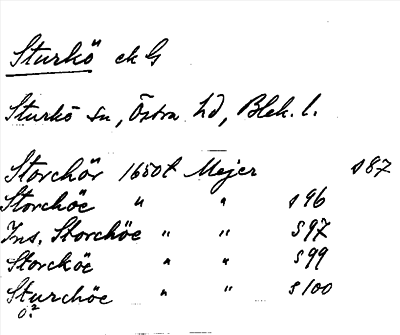 Sturkö ek G
Sturkö sn, Östra hd, Blek. l.
Storchör 1650t Mejer s 87
Storchöe " " s 96
Ins. Storchöe " " s 97
Storcköe " " s 99
Sturchöe " " s 100
ö.²